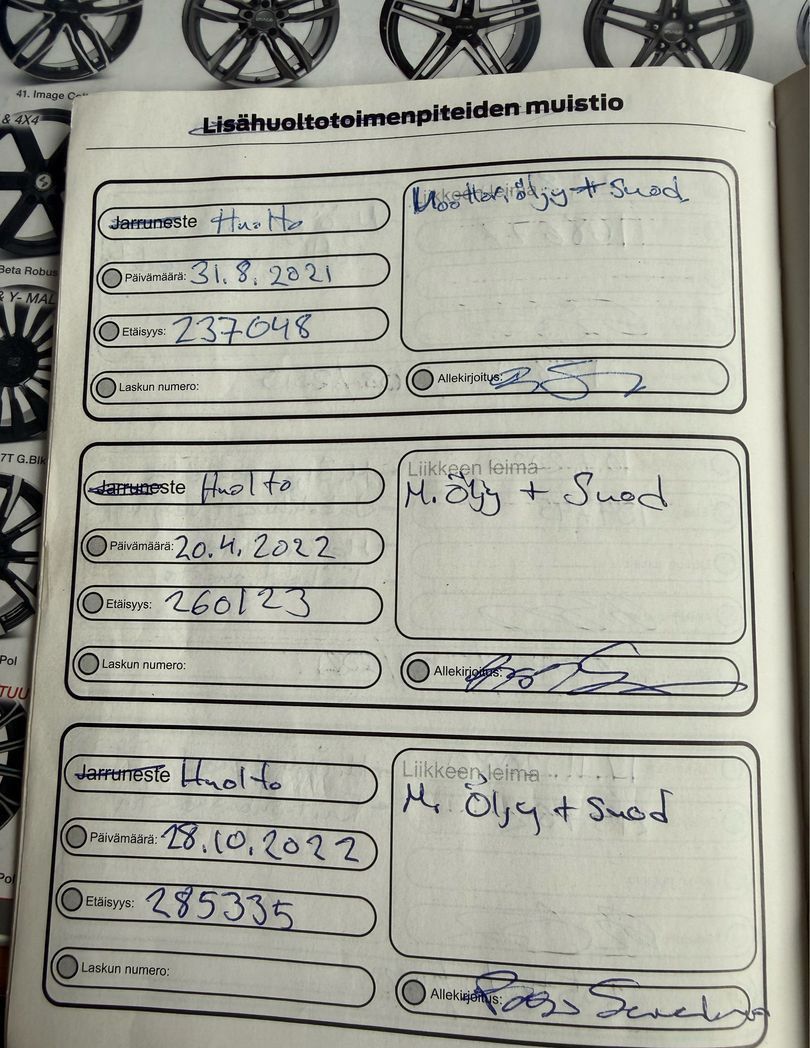 41. Image
& 4X4
Beta Robus
& Y- MAL
7T G.Blk
Pol
TUU
Pol
Lisähuoltotoimenpiteiden muistio
Jarruneste Huolto
Päivämäärä: 31.8.2021
Etäisyys: 237048
Laskun numero:
Liikkeen leima
Moottoriöljy + Suod
Allekirjoitus:
Jarruneste Huolto
Päivämäärä: 20.4.2022
Etäisyys: 260123
Laskun numero:
Liikkeen leima
M. Öljy + Suod
Allekirjoitus:
Jarruneste Huolto
Päivämäärä: 18.10.2022
Etäisyys: 285335
Laskun numero:
Liikkeen leima
M. Öljy + Suod
Allekirjoitus: